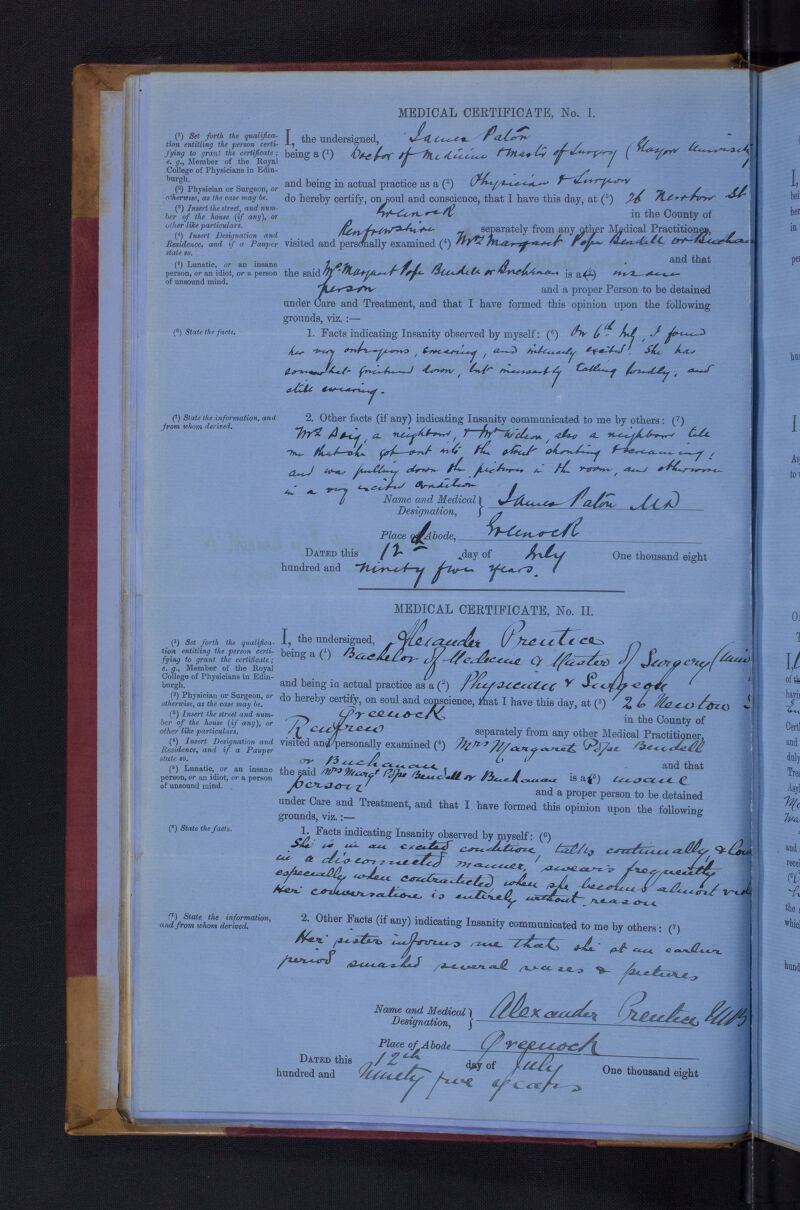 MEDICAL CERTIFICATE, No. I.
(¹) Set forth the qualifica-
tion entitling the person certi-
fying to grant the certificate;
e. g., Member of the Royal
College of Physicians in Edin-
burgh.
(²) Physician or Surgeon, or
otherwise, as the case may be.
(³) Insert the street, and num-
ber of the house (if any), or
other like particulars.
(⁴) Insert Designation and
Residence, and if a Pauper
state so.
(⁵) Lunatic, or an insane
person, or an idiot, or a person
of unsound mind.
I, the undersigned, James Paton
being a (¹) Doctor of Medicine & Master of Surgery (Glasgow University
and being in actual practice as a (²) Physician & Surgeon
do hereby certify, on soul and conscience, that I have this day, at (³) 26 Newton St
Greenock in the County of
Renfrewshire separately from any other Medical Practitioner,
visited and personally examined (⁴) Mrs Margaret Pope Bendell or Buchanan
and that
the said Mrs Margaret Pope Bendell or Buchanan is a (⁵) insane
person and a proper Person to be detained
under Care and Treatment, and that I have formed this opinion upon the following
grounds, viz. :—
(⁶) State the facts.
1. Facts indicating Insanity observed by myself: (⁶) On 6th July, I found
her very outrageous, swearing, and intensely excited. She has
somewhat quietened down, but incessantly talking loudly, and
still swearing.
(⁷) State the information, and
from whom derived.
2. Other facts (if any) indicating Insanity communicated to me by others: (⁷)
Mrs Doig, a neighbour, & Mrs Wilson, also a neighbour tell
me that she got out into the street shouting & screaming;
and was pulling down the pictures in the room, and otherwise
in a very excited condition
Name and Medical Designation, James Paton MD
Place of Abode, Greenock
DATED this 12th day of July One thousand eight
hundred and ninety five years.
MEDICAL CERTIFICATE, No. II.
(¹) Set forth the qualifica-
tion entitling the person certi-
fying to grant the certificate;
e. g., Member of the Royal
College of Physicians in Edin-
burgh.
(²) Physician or Surgeon, or
otherwise, as the case may be.
(³) Insert the street and num-
ber of the house (if any), or
other like particulars.
(⁴) Insert Designation and
Residence, and if a Pauper
state so.
(⁵) Lunatic, or an insane
person, or an idiot, or a person
of unsound mind.
I, the undersigned, Alexander Prentice
being a (¹) Bachelor of Medicine & Master of Surgery (Univ
and being in actual practice as a (²) Physician & Surgeon
do hereby certify, on soul and conscience, that I have this day, at (³) 26 Newton S
Greenock in the County of
Renfrew separately from any other Medical Practitioner,
visited and personally examined (⁴) Mrs Margaret Pope Bendell
or Buchanan and that
the said Mrs Margt Pope Bendell or Buchanan is a (⁵) insane
person and a proper person to be detained
under Care and Treatment, and that I have formed this opinion upon the following
grounds, viz. :—
(⁶) State the facts.
1. Facts indicating Insanity observed by myself: (⁶)
She is in an excited condition, talks continually & loud
in a disconnected manner, swears frequently
especially when contradicted when she becomes almost
Her conversation is entirely without reason
(⁷) State the information,
and from whom derived.
2. Other Facts (if any) indicating Insanity communicated to me by others: (⁷)
Her sister informs me that she at an earlier
period smashed several vases & pictures
Name and Medical Designation, Alexander Prentice MB
Place of Abode Greenock
DATED this 12th day of July One thousand eight
hundred and Ninety five years